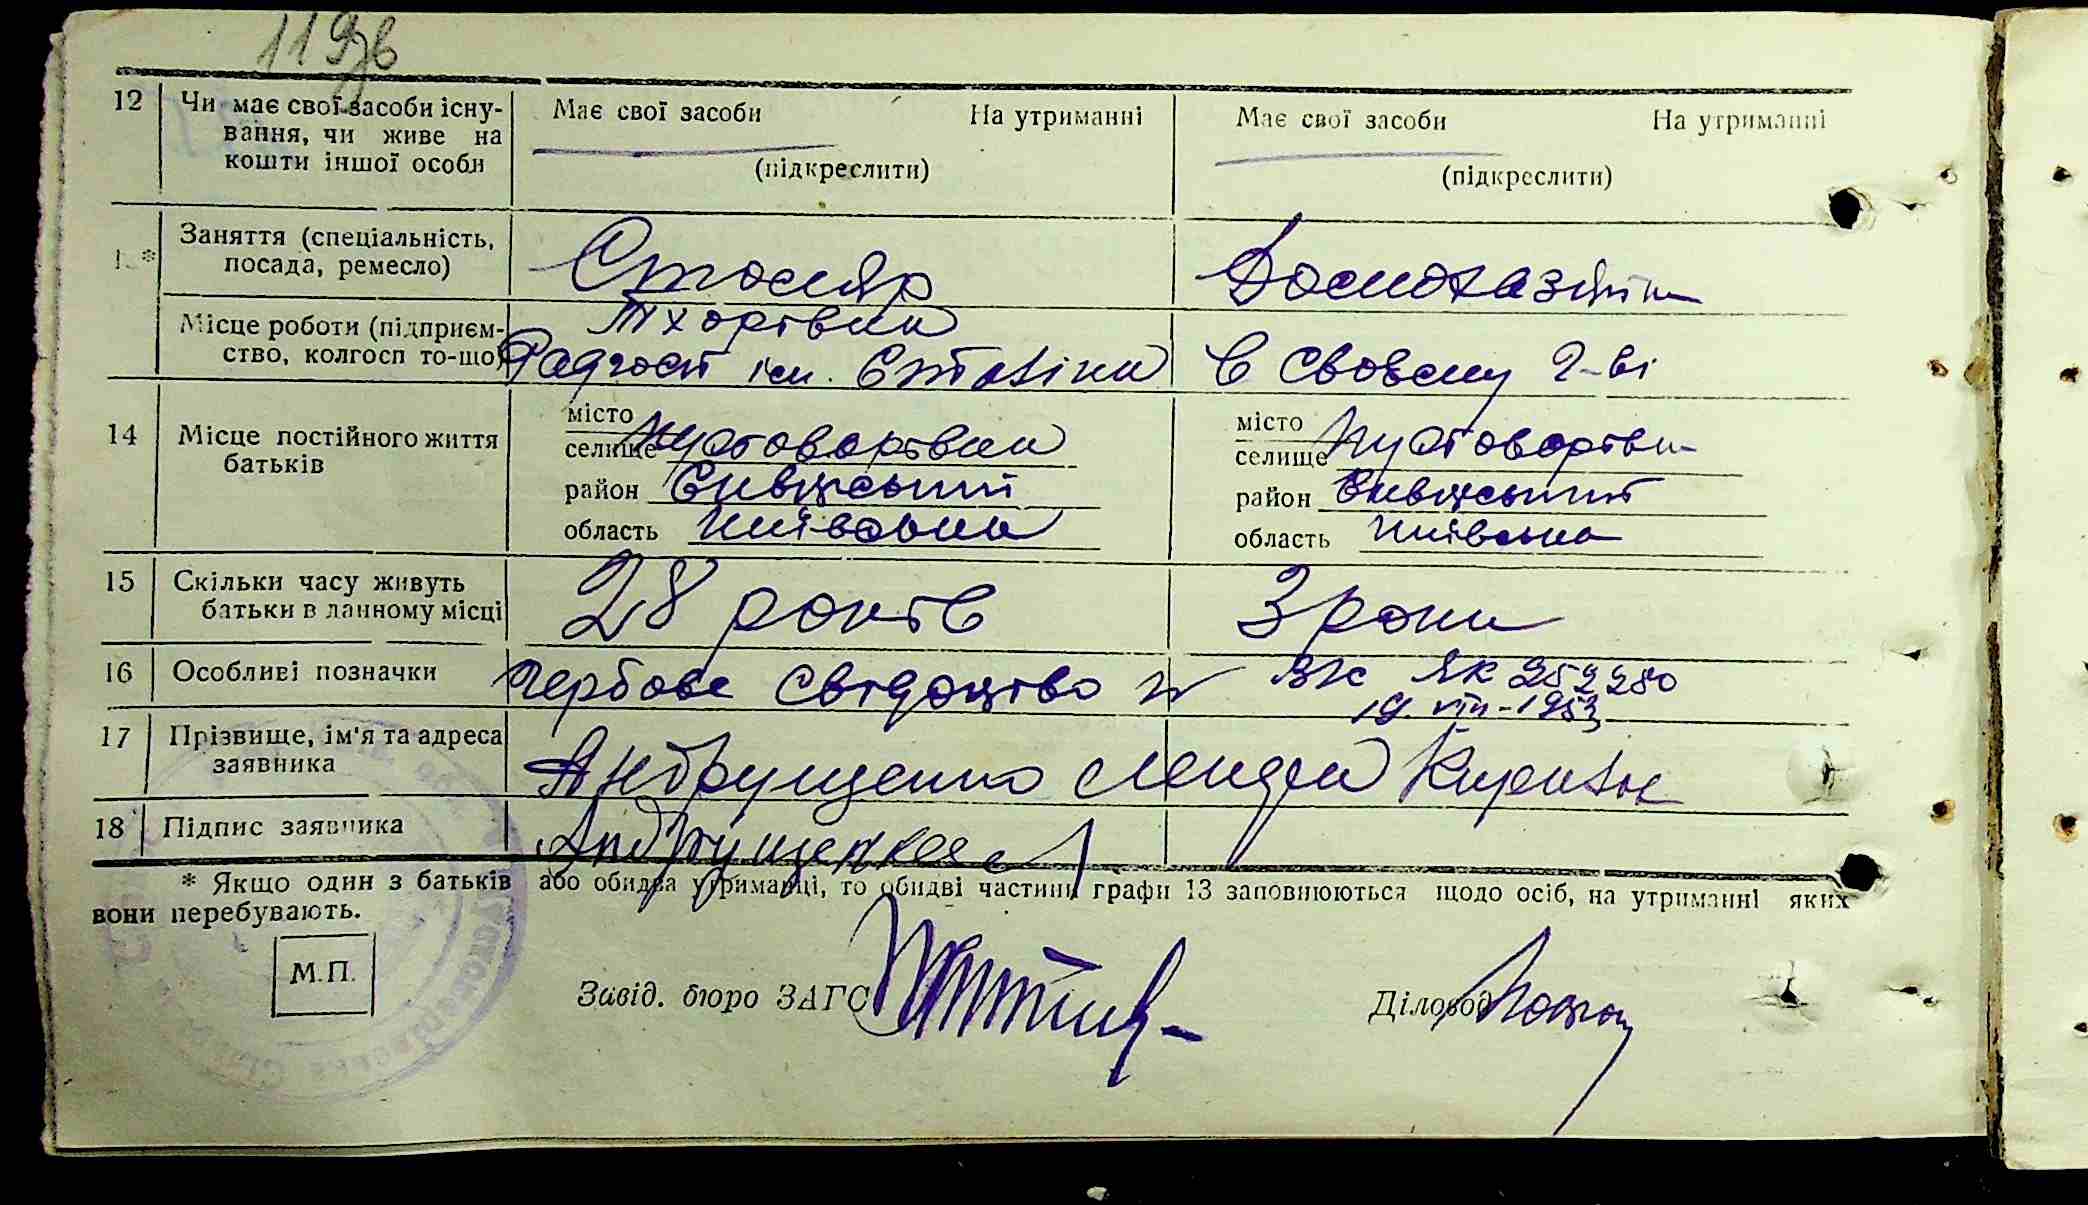 119зв
12 Чи має свої засоби існу- Має свої засоби На утриманні Має свої засоби На утриманні
вання, чи живе на
кошти іншої особи (підкреслити) (підкреслити)
Заняття (спеціальність, Столяр Домохазяйка
* посада, ремесло)
Місце роботи (підприєм-
ство, колгосп то-що) Радгосп ім. Сталіна в своєму г-ві
14 Місце постійного життя місто місто
батьків селище Пустоварівка селище Пустоварівка
район Сквирський район Сквирський
область Київська область Київська
15 Скільки часу живуть 28 років 3 роки
батьки в данному місці
16 Особливі позначки Гербове свідоцтво № ЯК 252280
19.VIII-1953
17 Прізвище, ім'я та адреса Андрущенко
заявника
18 Підпис заявника Андрущенко
* Якщо один з батьків або обидва утриманці, то обидві частини графи 13 заповнюються щодо осіб, на утриманні яких
вони перебувають.
М.П.
Завід. бюро ЗАГС Діловод